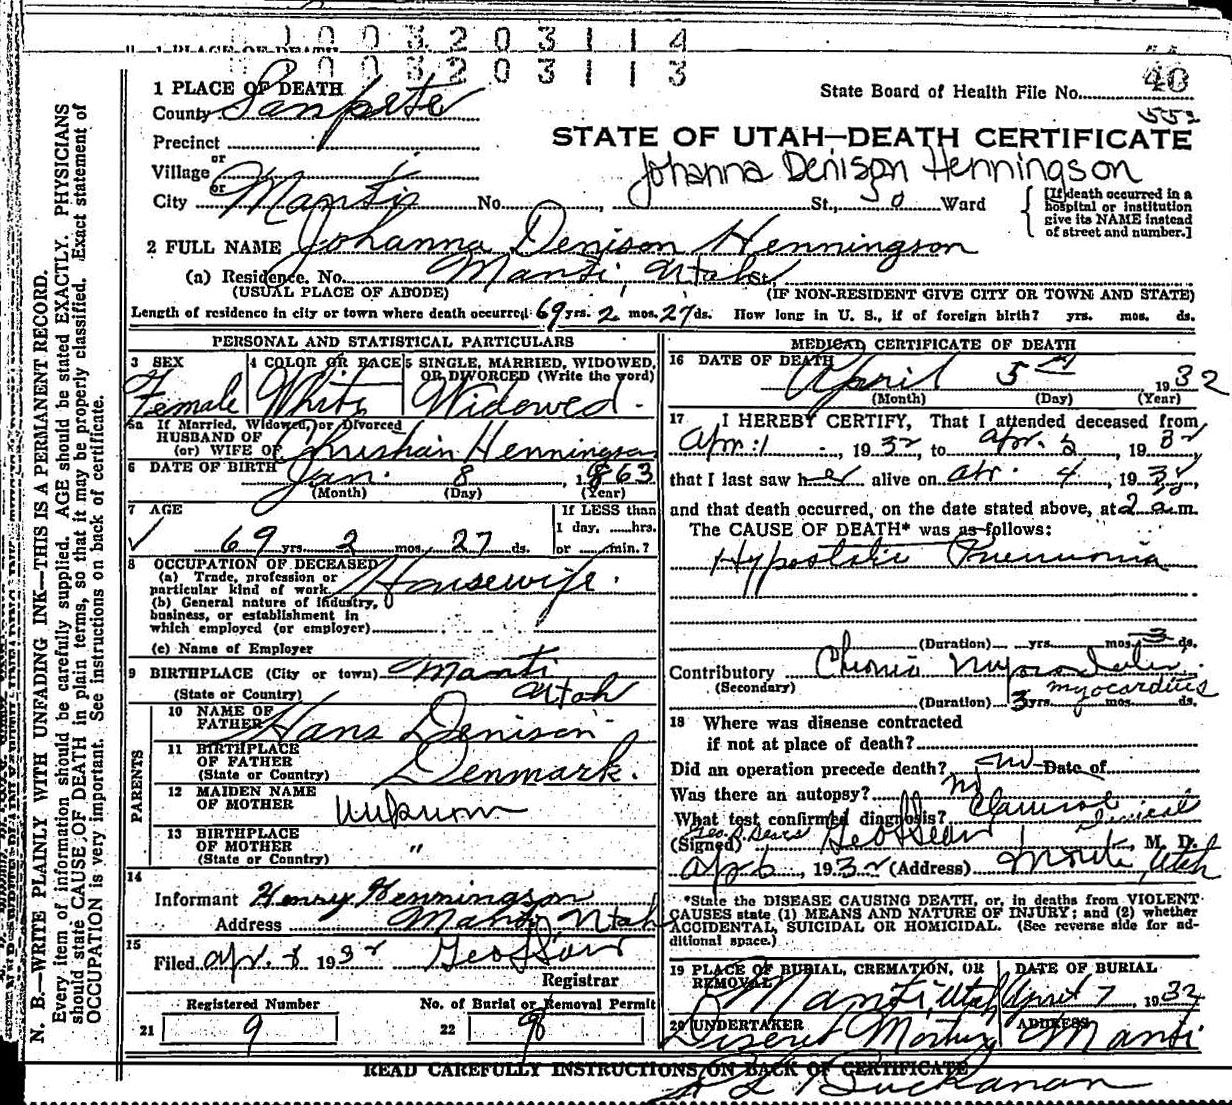 1 0 0 3 2 0 3 1 1 4
0 0 3 2 0 3 1 1 3
1 PLACE OF DEATH
County Sanpete
Precinct
or
Village
or
City Manti No. St., Ward
State Board of Health File No. 40
552
STATE OF UTAH—DEATH CERTIFICATE
Johanna Denison Henningson
[If death occurred in a hospital or institution give its NAME instead of street and number.]
2 FULL NAME Johanna Denison Henningson
(a) Residence. No. Manti, Utah St.,
(USUAL PLACE OF ABODE) (IF NON-RESIDENT GIVE CITY OR TOWN AND STATE)
Length of residence in city or town where death occurred 69 yrs. 2 mos. 27 ds. How long in U. S., if of foreign birth? yrs. mos. ds.
PERSONAL AND STATISTICAL PARTICULARS
3 SEX 4 COLOR OR RACE 5 SINGLE, MARRIED, WIDOWED, OR DIVORCED (Write the word)
Female White Widowed.
5a If Married, Widowed, or Divorced
HUSBAND OF
(or) WIFE OF Christian Henningson
6 DATE OF BIRTH Jan. 8, 1863
(Month) (Day) (Year)
7 AGE If LESS than
1 day, hrs.
69 yrs. 2 mos. 27 ds. or min.?
8 OCCUPATION OF DECEASED
(a) Trade, profession or particular kind of work Housewife.
(b) General nature of industry, business, or establishment in which employed (or employer)
(c) Name of Employer
9 BIRTHPLACE (City or town) Manti
(State or Country) Utah
PARENTS
10 NAME OF FATHER Hans Denison
11 BIRTHPLACE OF FATHER (State or Country) Denmark.
12 MAIDEN NAME OF MOTHER Unknown
13 BIRTHPLACE OF MOTHER (State or Country) "
14
Informant Henry Henningson
Address Manti, Utah
15
Filed Apr. 8 1932
Registrar
Registered Number No. of Burial or Removal Permit
21 9 22 98
MEDICAL CERTIFICATE OF DEATH
16 DATE OF DEATH
April 5th 1932
(Month) (Day) (Year)
17 I HEREBY CERTIFY, That I attended deceased from
Apr. 1, 1932, to Apr. 5, 1932
that I last saw her alive on Apr. 4, 1932,
and that death occurred, on the date stated above, at 2 a.m.
The CAUSE OF DEATH* was as follows:
Hypostatic Pneumonia
(Duration) yrs. mos. 3 ds.
Contributory Chronic Myocarditis
(Secondary) myocarditis
(Duration) 3 yrs. mos. ds.
18 Where was disease contracted
if not at place of death?
Did an operation precede death? no Date of
Was there an autopsy? no
What test confirmed diagnosis? Clinical
Clinical
Geo. R. Sears
(Signed) M. D.
Apr 6, 1932 (Address) Manti, Utah
*State the DISEASE CAUSING DEATH, or, in deaths from VIOLENT CAUSES state (1) MEANS AND NATURE OF INJURY; and (2) whether ACCIDENTAL, SUICIDAL OR HOMICIDAL. (See reverse side for additional space.)
19 PLACE OF BURIAL, CREMATION, OR REMOVAL DATE OF BURIAL
Manti, Utah April 7, 1932
20 UNDERTAKER ADDRESS
Deseret Mortuary Manti
READ CAREFULLY INSTRUCTIONS ON BACK OF CERTIFICATE
L Buchanan
N. B.—WRITE PLAINLY WITH UNFADING INK—THIS IS A PERMANENT RECORD.
Every item of information should be carefully supplied. AGE should be stated EXACTLY. PHYSICIANS
should state CAUSE OF DEATH in plain terms, so that it may be properly classified. Exact statement of
OCCUPATION is very important. See instructions on back of certificate.